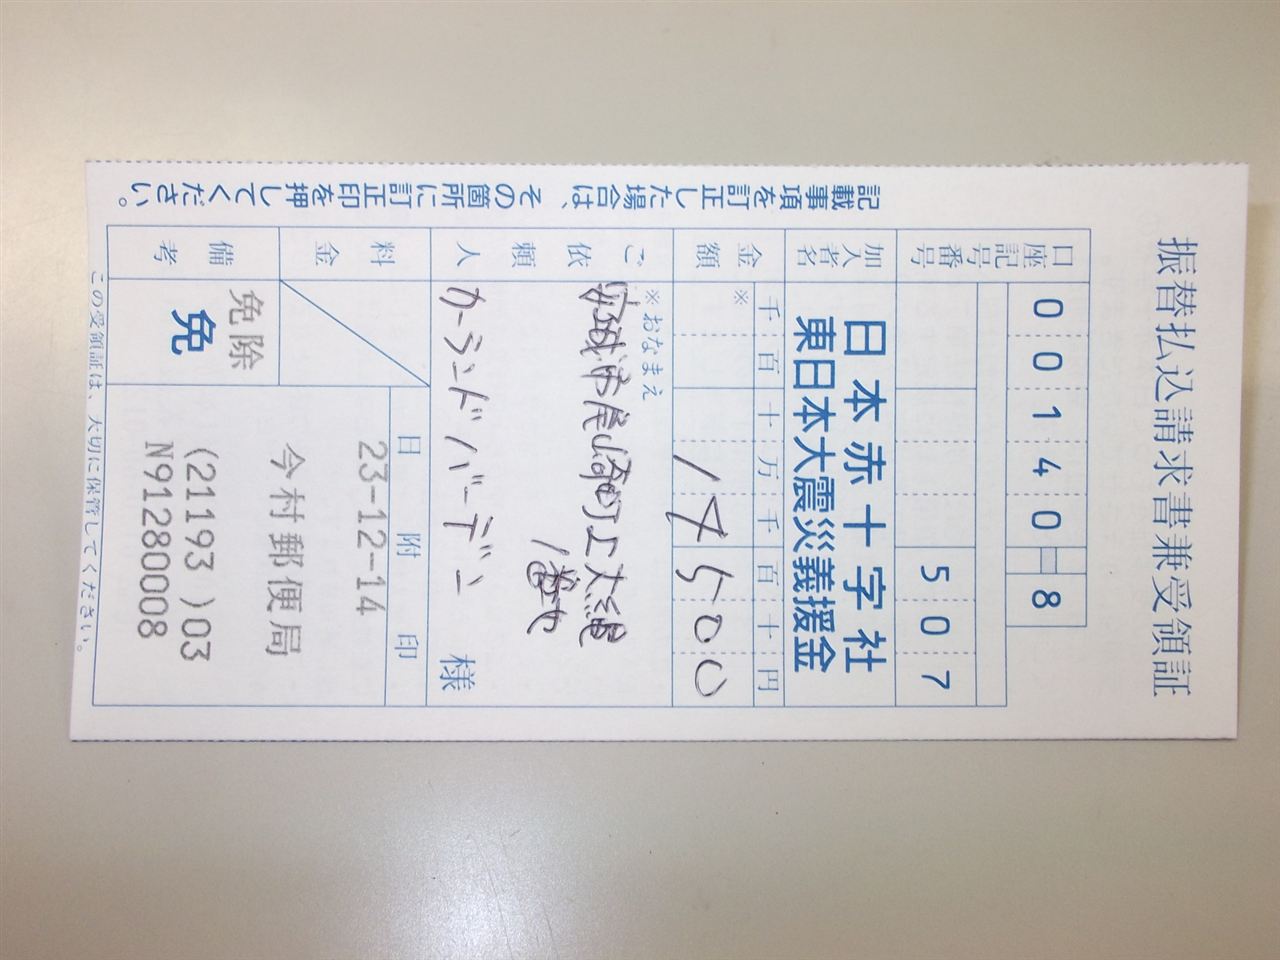 振替払込請求書兼受領証
口座記号番号
00140-8
507
加入者名
日本赤十字社
東日本大震災義援金
金額
千百十万千百十円
※
17500
ご依頼人
※おなまえ
安城市尾崎町上大縄
1番地
カーランドバーデン
様
料金
日附印
23-12-14
今村郵便局
(21193 )03
N91280008
備考
免除
免
記載事項を訂正した場合は、その箇所に訂正印を押してください。
この受領証は、大切に保管してください。